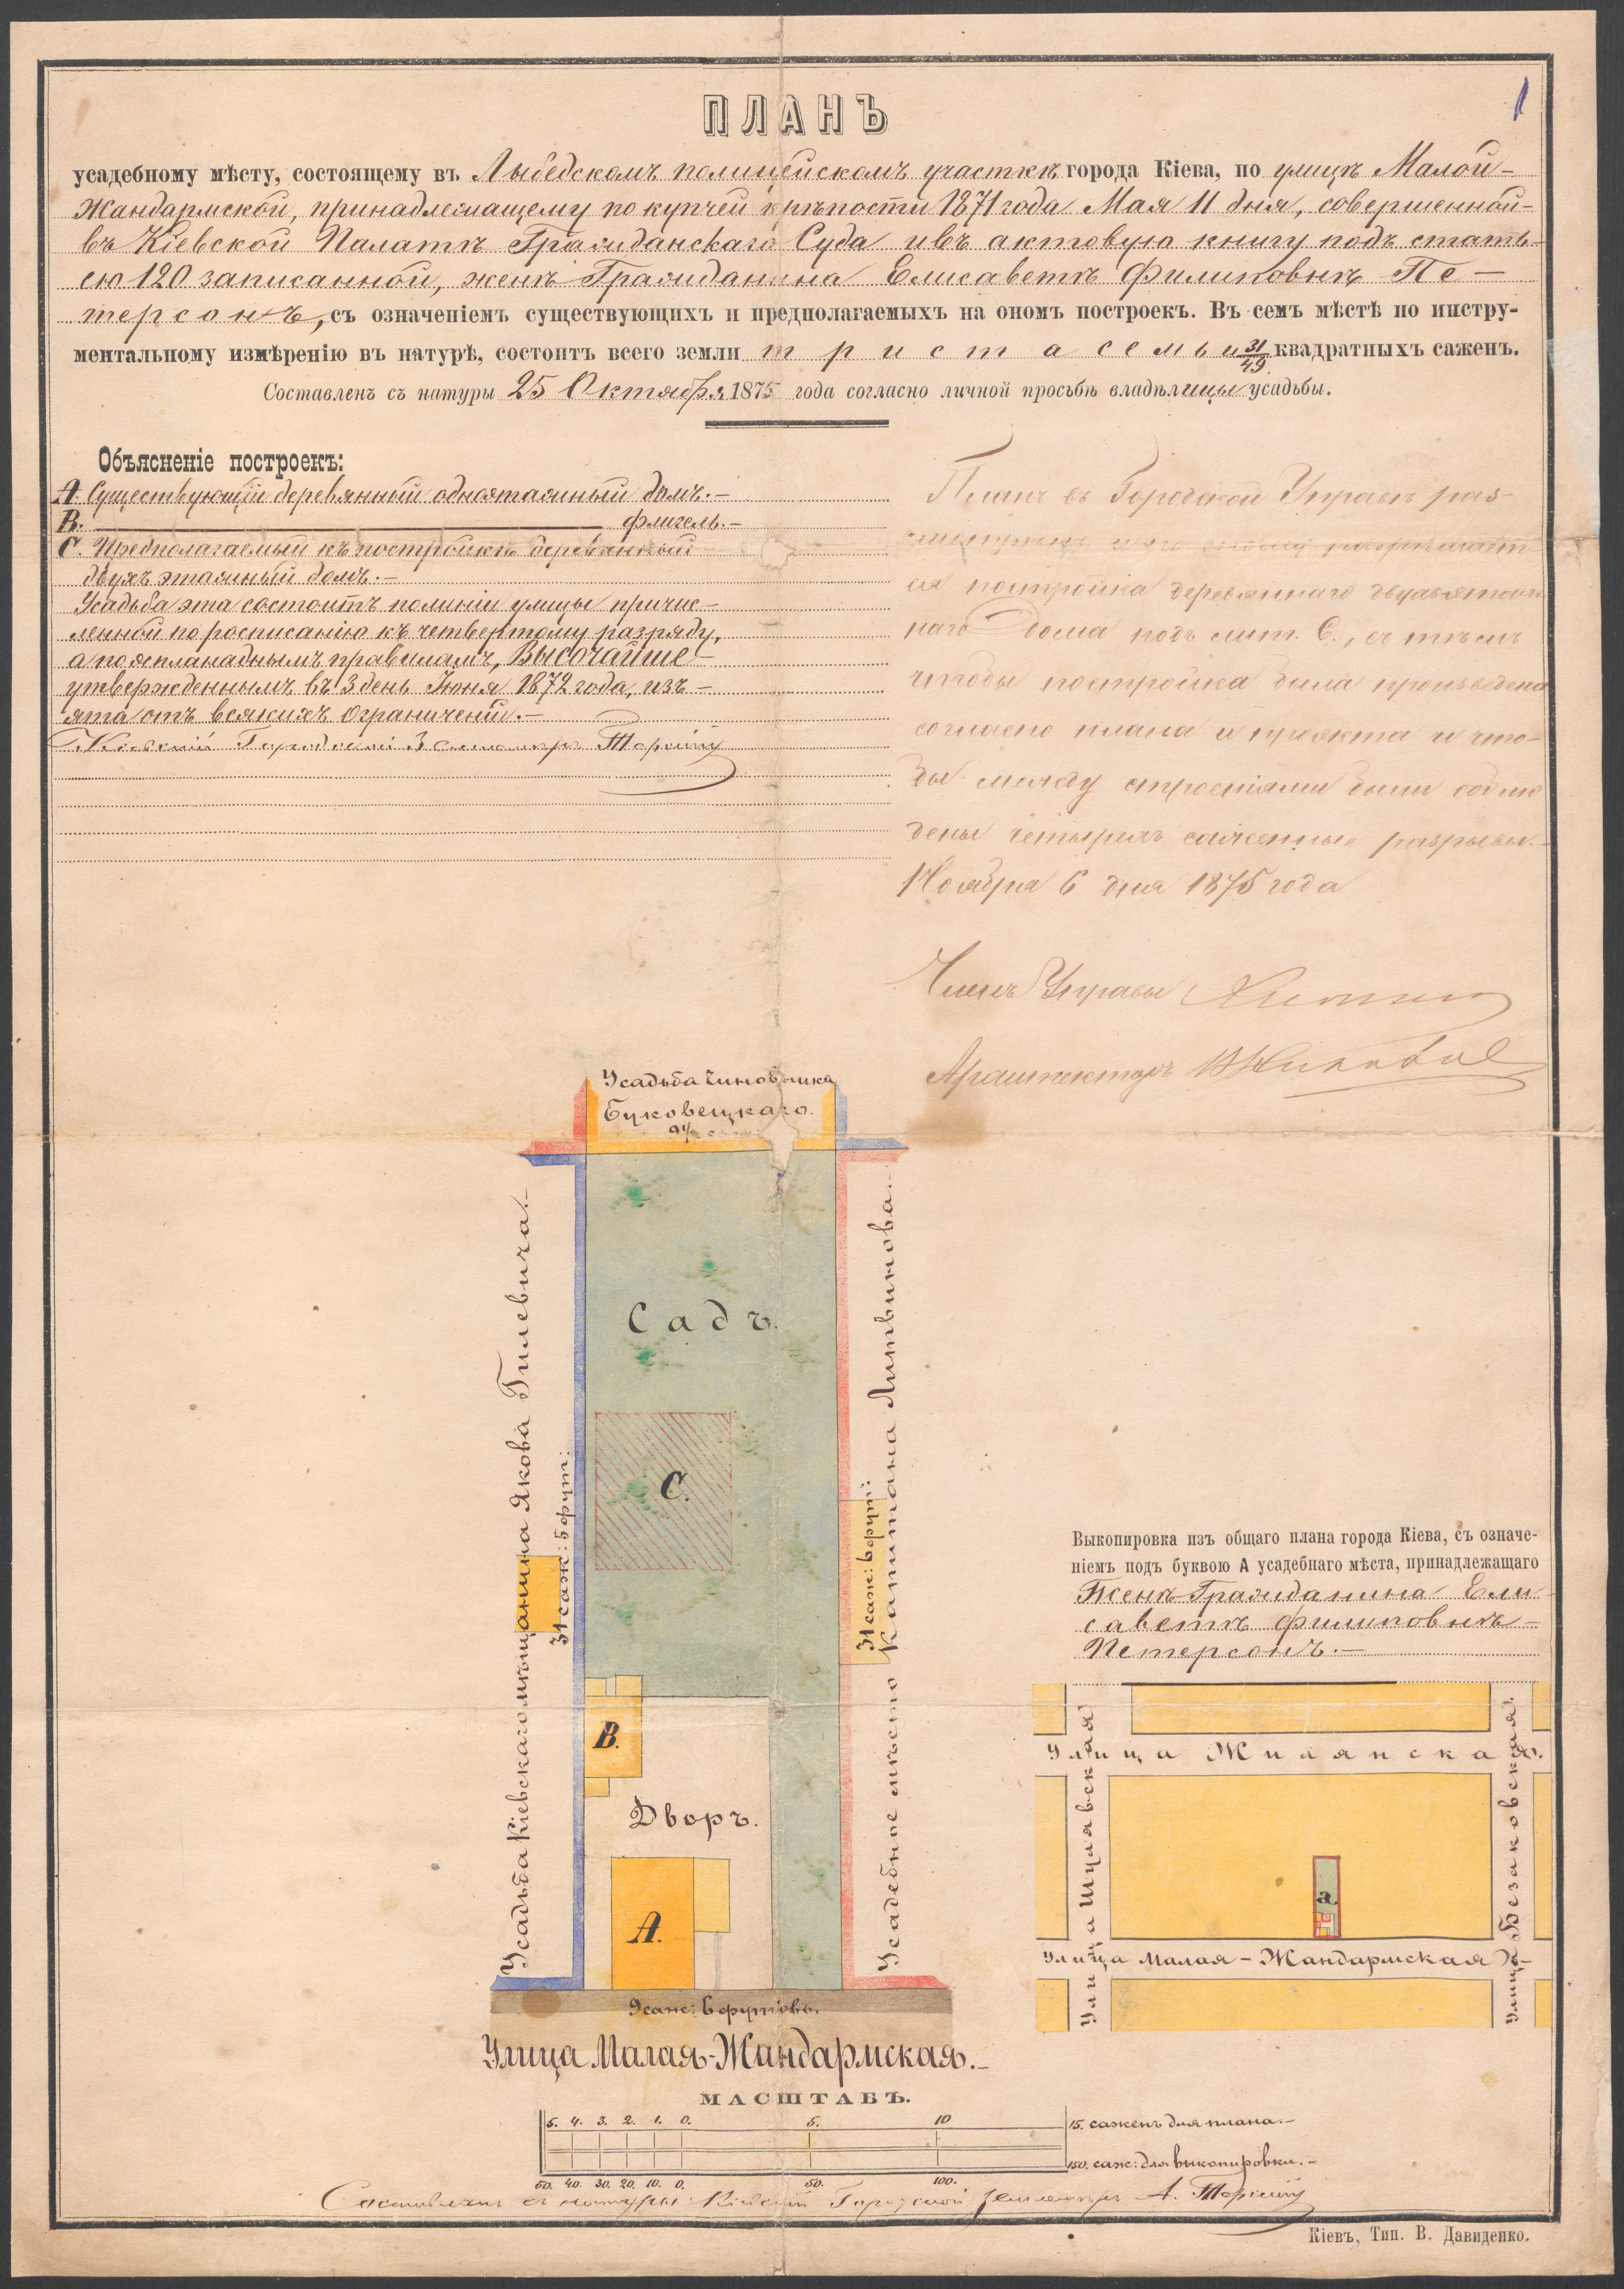 1
ПЛАНЪ
усадебному мѣсту, состоящему въ Лыбедскомъ полицейскомъ участкѣ города Кіева, по улицѣ Малой-
Жандармской, принадлежащему по купчей крѣпости 1871 года Мая 11 дня, совершенной-
въ Кіевской Палатѣ Гражданскаго Суда и въ актовую книгу подъ стать-
ею 120 записанной, женѣ Гражданина Елисаветѣ Филиповнѣ Пе-
терсонъ, съ означеніемъ существующихъ и предполагаемыхъ на ономъ построекъ. Въ семъ мѣстѣ по инстру-
ментальному измѣренію въ натурѣ, состоитъ всего земли триста семь и 31/49 квадратныхъ саженъ.
Составленъ съ натуры 25 Октября 1875 года согласно личной просьбѣ владѣлицы усадьбы.
Объясненіе построекъ:
А. Существующій деревянный одноэтажный домъ.-
В. флигель.-
С. Предполагаемый къ постройкѣ деревянный
двухъ этажный домъ.-
Усадьба эта состоитъ по линіи улицы причис-
ленной по росписанію къ четвертому разряду,
а по эспланаднымъ правиламъ, Высочайше-
утвержденнымъ въ 3 день Іюня 1872 года, изъ-
ята отъ всякихъ ограниченій.-
Кіевскій Городской Землемѣръ Терскій
Планъ въ Городской Управѣ раз-
смотрѣнъ и по оному разрѣшает-
ся постройка деревяннаго двухъэтаж-
наго дома подъ лит. С., съ тѣмъ
чтобы постройка была произведена
согласно плана и проэкта и что-
бы между строеніями были соблю
дены четырехъ саженные разрывы.-
Ноября 6 дня 1875 года
Членъ Управы
Архитекторъ В Николаев
Усадьба чиновника
Буковецкаго.
9½
Усадьба Кіевскаго мѣщанина Якова Гилевича.-
31 саж: 5 фут:
Садъ.
С.
31 саж: 6 фут:
Усадебное мѣсто Капитана Литвинова.-
В.
Дворъ.
А.
9 саж: 6 футовъ.
Улица Малая-Жандармская.-
Выкопировка изъ общаго плана города Кіева, съ означе-
ніемъ подъ буквою А усадебнаго мѣста, принадлежащаго
Женѣ Гражданина Ели
саветѣ Филиповнѣ-
Петерсонъ.-
Улица Жилянская.
Улица Шулявская
Улица Безаковская
а
Улица Малая-Жандармская
МАСШТАБЪ.
5. 4. 3. 2. 1. 0. 5. 10 15. саженъ для плана.-
50. 40. 30. 20. 10. 0. 50. 100. 150. саж: для выкопировки.-
Составленъ съ натуры Кіевскій Городской Землемѣръ А. Терскій
Кіевъ, Тип. В. Давиденко.